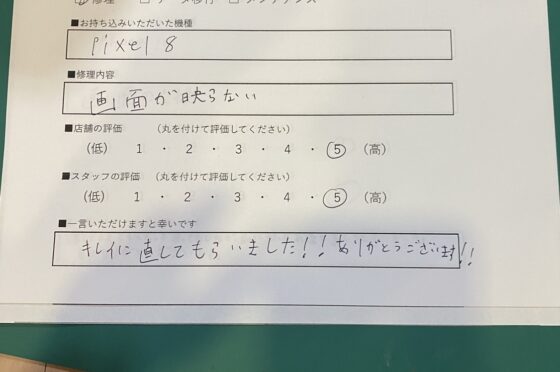 修理 □ データ移行 □ メンテナンス
■お持ち込みいただいた機種
Pixel 8
■修理内容
画面が映らない
■店舗の評価 (丸を付けて評価してください)
(低) 1 ・ 2 ・ 3 ・ 4 ・ 5 (高)
■スタッフの評価 (丸を付けて評価してください)
(低) 1 ・ 2 ・ 3 ・ 4 ・ 5 (高)
■一言いただけますと幸いです
キレイに直してもらいました!!ありがとうございます!!